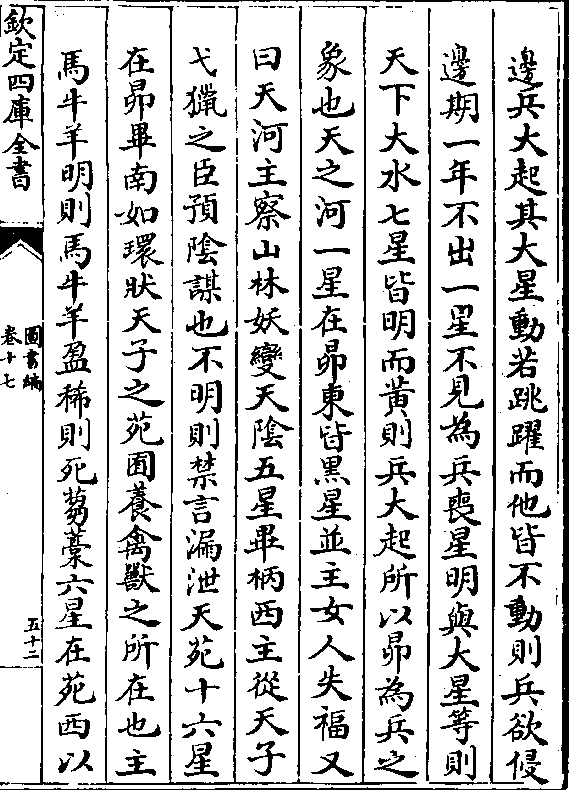 邊兵大起其大星動若跳躍而他皆不動則兵欲侵
邊期一年不出一星不見為兵喪星明與大星等則
天下大水七星皆明而黃則兵大起所以昴為兵之
象也天之河一星在昴東皆黑星並主女人失福又
曰天河主察山林妖變天陰五星畢柄西主從天子
弋獵之臣預陰謀也不明則禁言漏泄天苑十六星
在昴畢南如環狀天子之苑囿養禽獸之所在也主
馬牛羊明則馬牛羊盈稀則死蒭藳六星在苑西以
欽定四庫全書
圖書編
卷十七
五十二